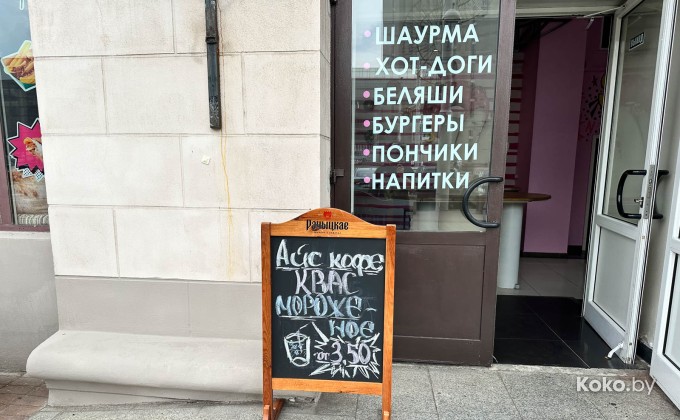 ШАУРМА
ХОТ-ДОГИ
БЕЛЯШИ
БУРГЕРЫ
ПОНЧИКИ
НАПИТКИ
Рачыцкае
Айс кофе
КВАС
МОРОЖЕ-
НОЕ
от 3,50
Koko.by